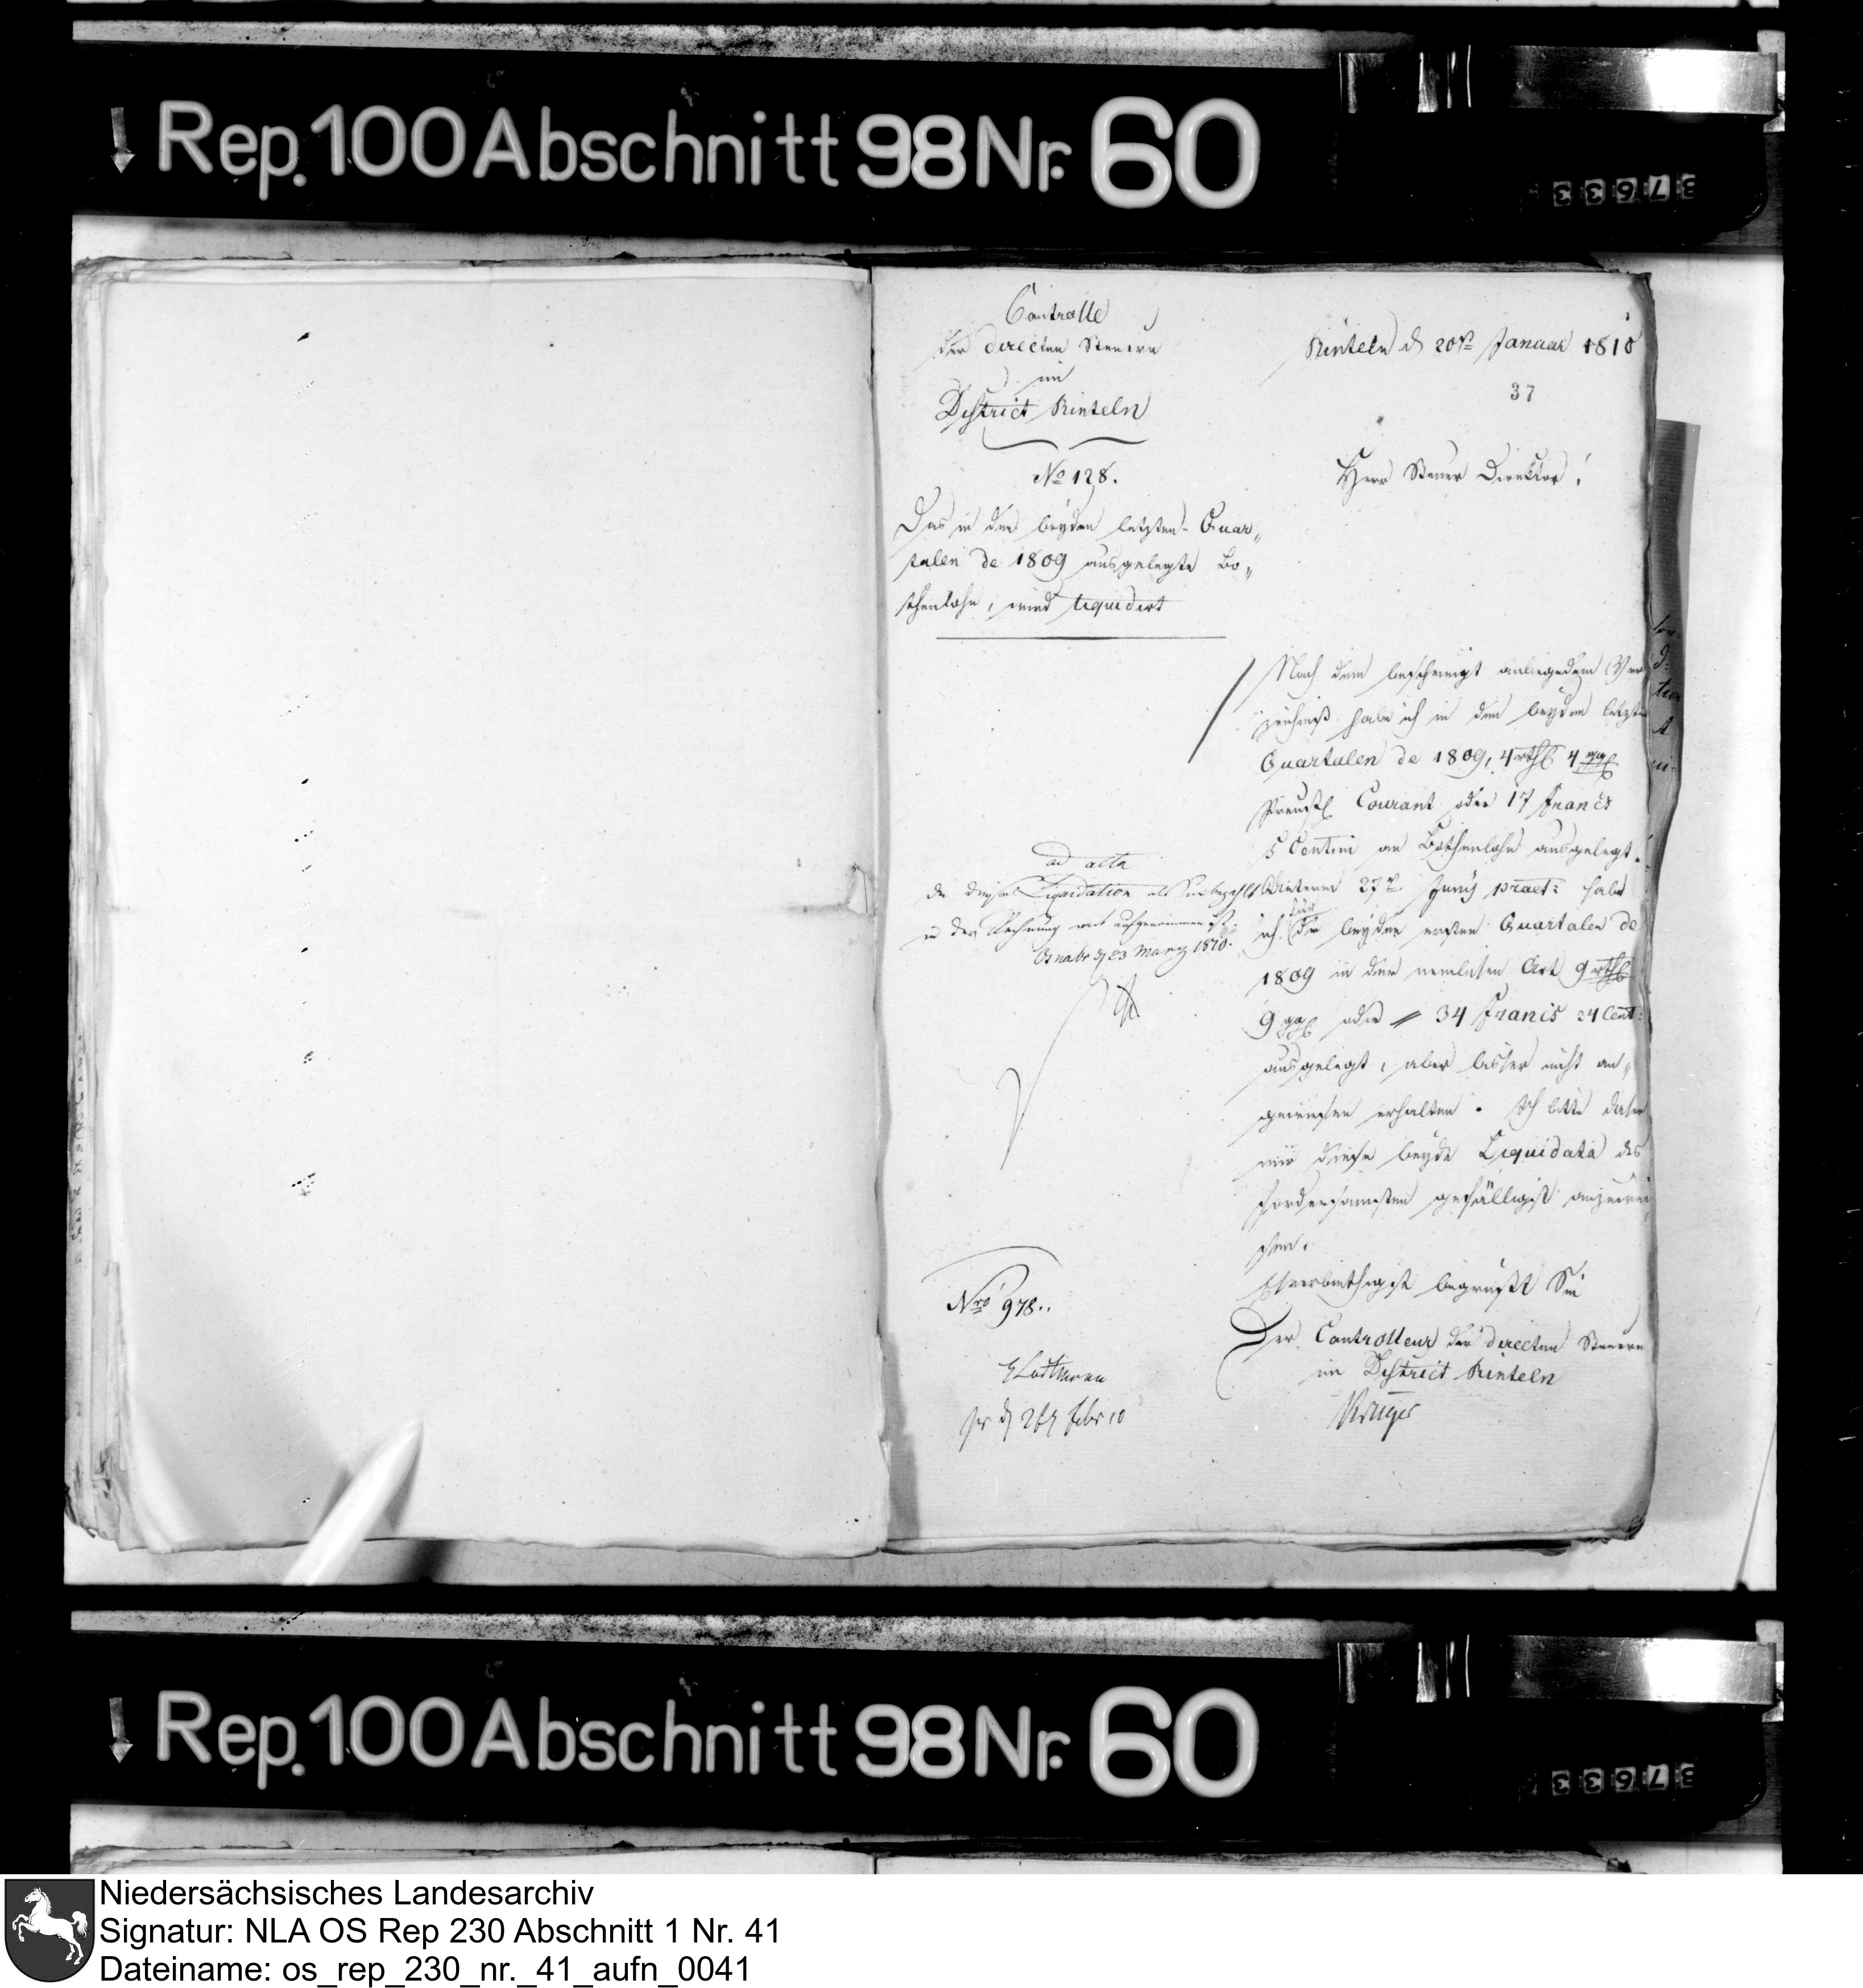 Rep. 100 Abschnitt 98 Nr. 60
37633
Controlle
der directen Steuern
im
District Rinteln
No 128.
Das in den beyden letzten Quar„
talen de 1809 ausgelegte Bo„
thenlohn, wird liquidirt
Rinteln d 20ten Januar 1810
37
Herr Steuer Direktor!
Nach dem bescheinigt anliegendem Ver
zeichniß habe ich in den beyden letzten
Quartalen de 1809, 4 rthl 4 ggl
Preuß Courant oder 17 Francs
5 Centim an Bothenlohn ausgelegt.
Unterm 27ten Juny praet: habe
ich für die beyden ersten Quartalen de
1809 in der nemlichen Art 9 rthl
9 ggl oder 34 Francs 24 Cent:
ausgelegt, aber bisher nicht an„
gewiesen erhalten. Ich bitte daher
mir diese beyde Liquidata des
fordersamsten gefälligst anzuwei
sen.
begrüßt Sie
Der Controlleur der directen Steuern
im District Rinteln
Krüger
ad acta
da diese Liquidation als
in der Rechnung mit aufgenommen ist.
Osnabr d 23 März 1810.
Nro 978.
pr d 26 Febr 10
Rep. 100 Abschnitt 98 Nr. 60
37633
Niedersächsisches Landesarchiv
Signatur: NLA OS Rep 230 Abschnitt 1 Nr. 41
Dateiname: os_rep_230_nr._41_aufn_0041